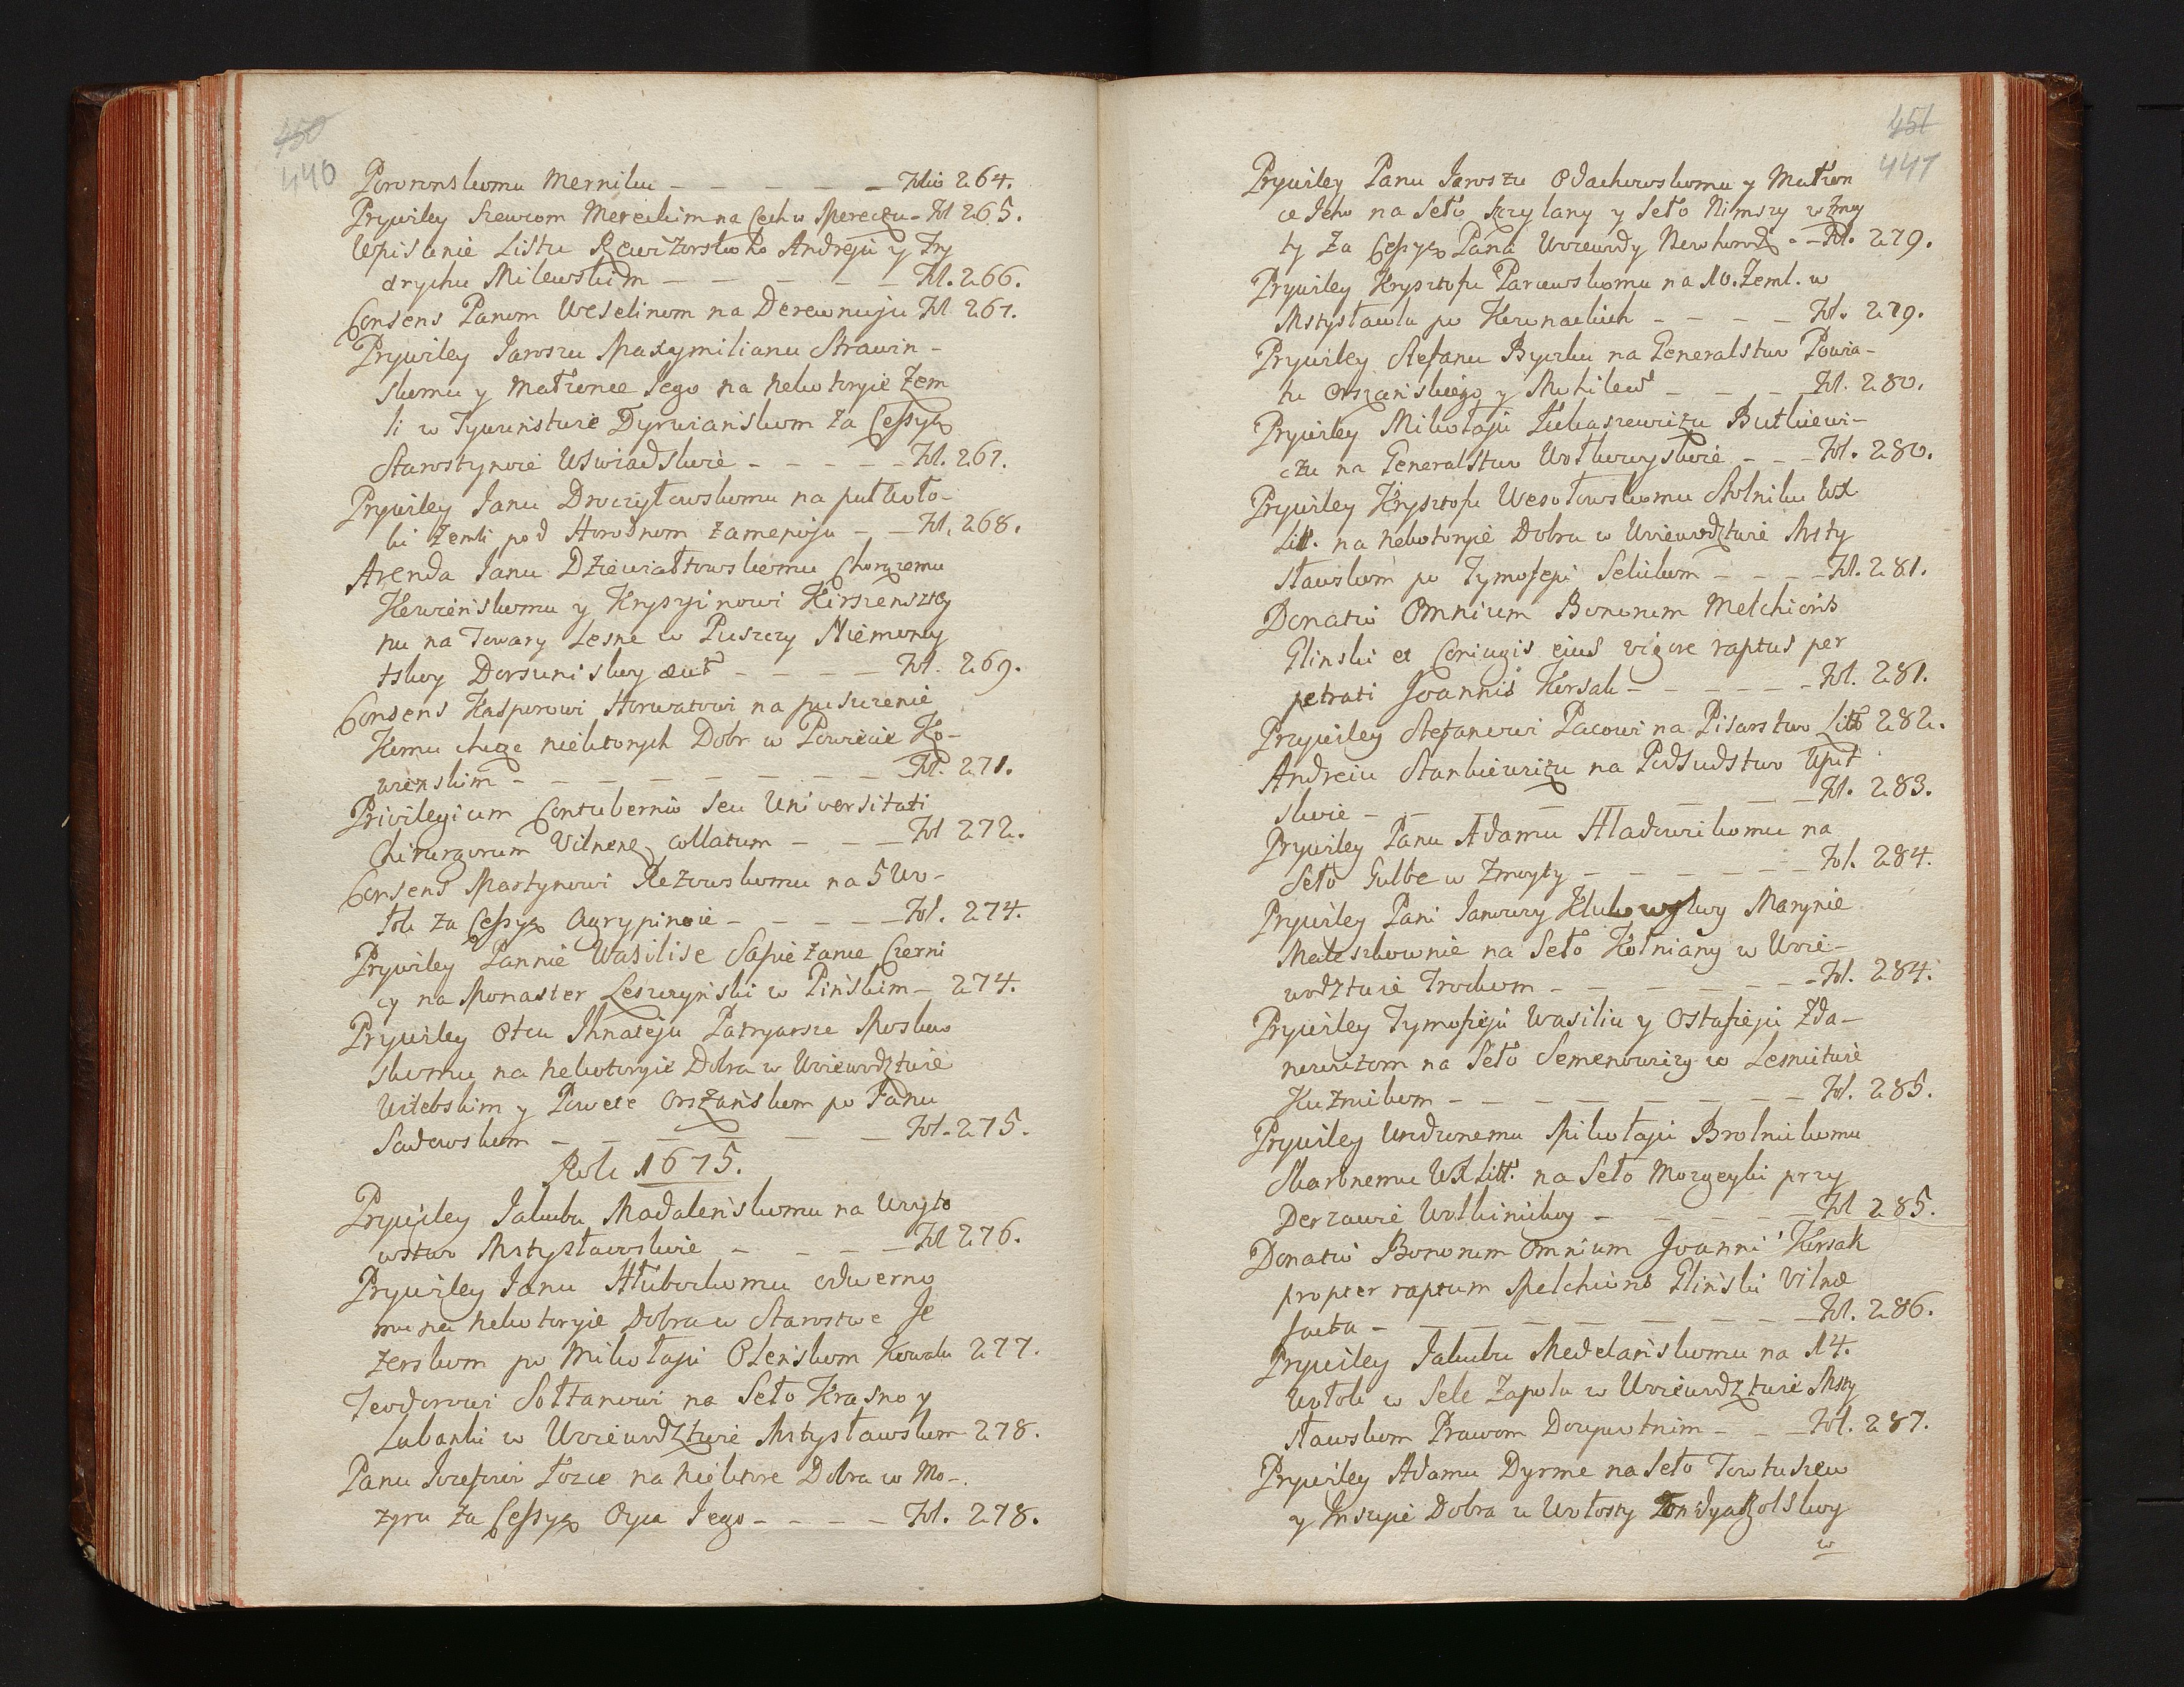 450
446
Pororonskomu Merniku – – – – – – Folio 264.
Prywiley Szewcom Mereckim na Cech w Mereczu – Fol 265.
Upisanie Listu Rewizorskoho Andreju y Fry
drychu Milewskim – – – – – – Fol. 266.
Consens Panom Weselinom na Derewniju Fol 267.
Prywiley Jaroszu Maxymilianu Strawin-
skomu y Małżonce Jego na nekotoryie Zem
li w Tywuństwie Dyrwiańskom za Cessyą
Starostynoie Uswiadskoie – – – – – Fol. 267.
Prywiley Janu Droczyłowskomu na puł woło-
ki Zemli pod Horodnom zamenoju – – Fol. 268.
Arenda Janu Dziewiałtowskomu Chorążemu
Kowieńskomu y Krysztinowi Kirszensztey
nu na Towary Lesne w Puszczy Niemony
tskoy Dorsuniskoy etc – – – – Fol. 269.
Consens Kasporowi Horwatowi na puszczenie
Komu chcąc niektorych Dobr w Powiecie Ko-
wienskim – – – – – – – – – Fol. 271.
Privilegium Contubernio seu Universitati
Chirurgorum Vilnens. collatum – – – Fol 272.
Consens Martynowi Rezowskomu na 5 Wo-
łok za Cessyą Agrypinoie – – – – – Fol. 274.
Prywiley Pannie Wasilise Sapieżance Czerni
cy na Monaster Leszczyński w Pińskim – 274.
Prywiley Otcu Ihnateju Patryarsze Mosko
skomu na nekotoryie Dobra w Woiewodztwie
Witebskim y Powete Orszańskom po Janu
Sadowskom – – – – – – – Fol. 275.
Roku 1675.
Prywiley Jakubu Madaleńskomu na Woyto
wstwo Mstysławoskoie – – – – – Fol 276.
Prywiley Janu Hłubockomu odwerno
mu na nekotoryie Dobra w Starostwe Je
zerskom po Mikołaju Oleńskom Kowalu 277.
Teodorowi Sołtanowi na Seło Krasno y
Lubanki w Woiewodztwie Mstysławskom 278.
Panu Jozefowi Łozce na niektore Dobra w Mo-
zyru za Cessyą Oyca Jego – – – – Fol. 278.
451
447
Prywiley Panu Jaroszu Odachowskomu y Małżon
ce Jeho na Seło Szylany y Seło Nimszy w Zmoy
ty za Cessyą Pana Woiewody Nowhorod. – Fol. 279.
Prywiley Krysztofu Parcewskomu na 10. Zeml. w
Mstysławlu po Kuwnackich – – – – Fol. 279.
Prywiley Stefanu Byczku na Generalstwo Powia-
tu Orszańskiego y Mohilew – – – – Fol. 280.
Prywiley Mikołaju Łukaszewiczu Butkiewi-
czu na Generalstwo Wołkowyskoie – – – Fol. 280.
Prywiley Krysztofu Wesołowskomu Stolniku WX
Litt. na nekotoryie Dobra w Woiewodztwie Msty
sławskom po Tymofeju Selickom – – – – Fol. 281.
Donatio Omnium Bonorum Melchioris
Glinski et Coniugis ejus vigore raptus per
petrati Joannis Korsak – – – – – – Fol. 281.
Prywiley Stefanowi Pacowi na Pisarstwo Litt 282.
Andreiu Stankiewiczu na Podsudstwo Upit
skoie – – – – – – – – Fol. 283.
Prywiley Panu Adamu Hładowickomu na
Seło Gulbe w Zmoyty – – – – – – Fol. 284.
Prywiley Pani Janowoy Klukowskoy Marynie
Maleszkownie na Seło Kołniany w Woie-
wodztwie Trockom – – – – – – – Fol. 284.
Prywiley Tymofieju Wasiliu y Ostafieju Zda-
nowiczom na Seło Semenowiczy w Lesnictwie
Kuznickom – – – – – – – – – Fol. 285.
Prywiley Urodzonemu Mikołaju Brolnickomu
Skarbnemu WX Litt. na Seło Morgeyki przy
Derzawie Wołkinickoy – – – – – – Fol 285.
Donatio Bonorum Omnium Joanni Korsak
propter raptum Melchioris Glinski Vilnae
facta – – – – – – – – – Fol. 286.
Prywiley Jakubu Medelańskomu na 14.
Wołok w Sele Zapolu w Woiewodztwie Msty
sławskom Prawom Dożywotnim – – – Fol. 287.
Prywiley Adamu Dyrme na Seło Towtuszew
y Inszyie Dobra u Wołosty Tondyagolskoy
w